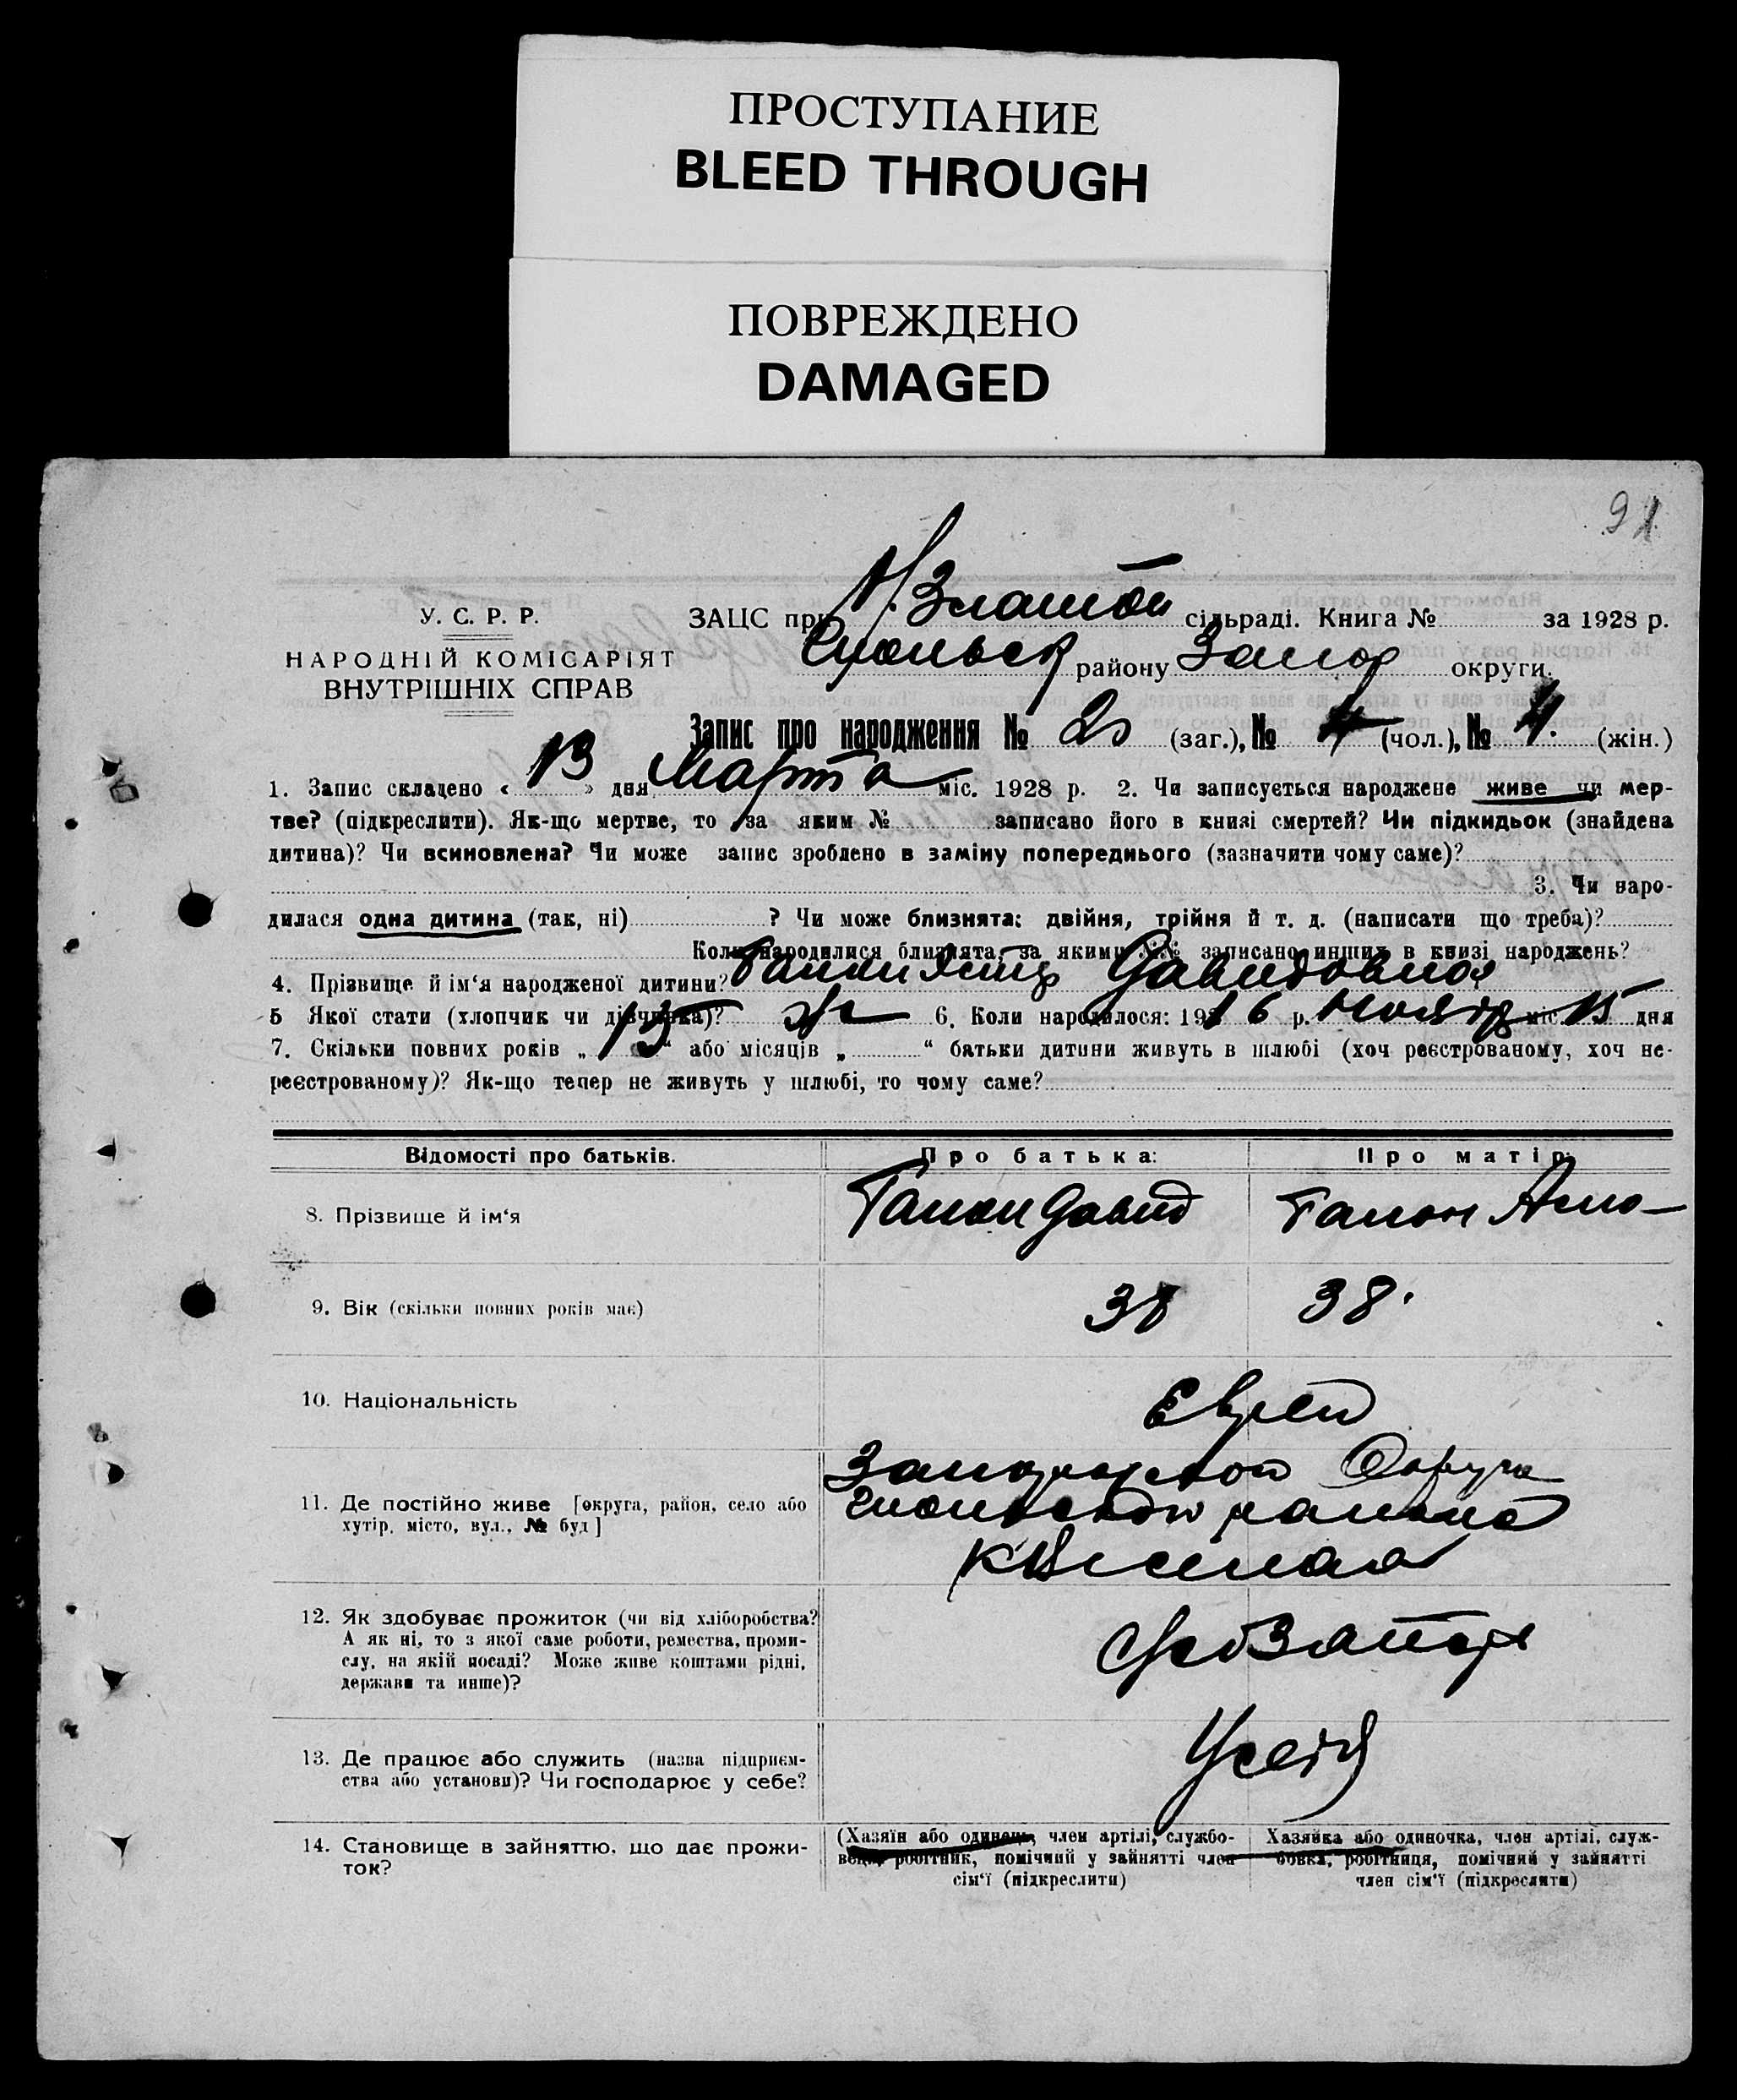 ПРОСТУПАНИЕ
BLEED THROUGH
ПОВРЕЖДЕНО
DAMAGED
91
У. С. Р. Р.
НАРОДНІЙ КОМІСАРІЯТ
ВНУТРІШНІХ СПРАВ
ЗАЦС при сільраді. Книга № за 1928 р.
району Запор округи.
Запис про народження № (заг.), № 4 (чол.), № 4. (жін.)
1. Запис складено « 13 » дня Марта міс. 1928 р. 2. Чи записується народжене живе чи мер-
тве? (підкреслити). Як-що мертве, то за яким № записано його в книзі смертей? Чи підкидьок (знайдена
дитина)? Чи всиновлена? Чи може запис зроблено в заміну попереднього (зазначити чому саме)?
3. Чи наро-
дилася одна дитина (так, ні) ? Чи може близнята: двійня, трійня й т. д. (написати що треба)?
Коли народилися близнята, за якими №№ записано инших в книзі народжень?
4. Прізвище й ім'я народженої дитини? Давидовная
5 Якої стати (хлопчик чи дівчинка)? ж 6. Коли народилося: 1916 р. Ноябр міс. 15 дня
7. Скільки повних років „ 15 “ або місяців „ “ батьки дитини живуть в шлюбі (хоч реєстрованому, хоч не-
реєстрованому)? Як-що тепер не живуть у шлюбі, то чому саме?
Відомості про батьків. Про батька: Про матір:
8. Прізвище й ім'я Ганон Давид Ганон
9. Вік (скільки повних років має) 38 38.
10. Національність Еврей
11. Де постійно живе [округа, район, село або
хутір, місто, вул., № буд]
Запорожской Округа
района
12. Як здобуває прожиток (чи від хліборобства?
А як ні, то з якої саме роботи, ремества, проми-
слу, на якій посаді? Може живе коштами рідні,
держави та инше)?
13. Де працює або служить (назва підприєм-
ства або установи)? Чи господарює у себе?
У себя
14. Становище в зайняттю, що дає прожи-
ток?
(Хазяїн або одинець, член артілі, службо-
вець, робітник, помічний у зайнятті член
сім'ї (підкреслити)
Хазяйка або одиночка, член артілі, служ-
бовка, робітниця, помічний у зайнятті
член сім'ї (підкреслити)